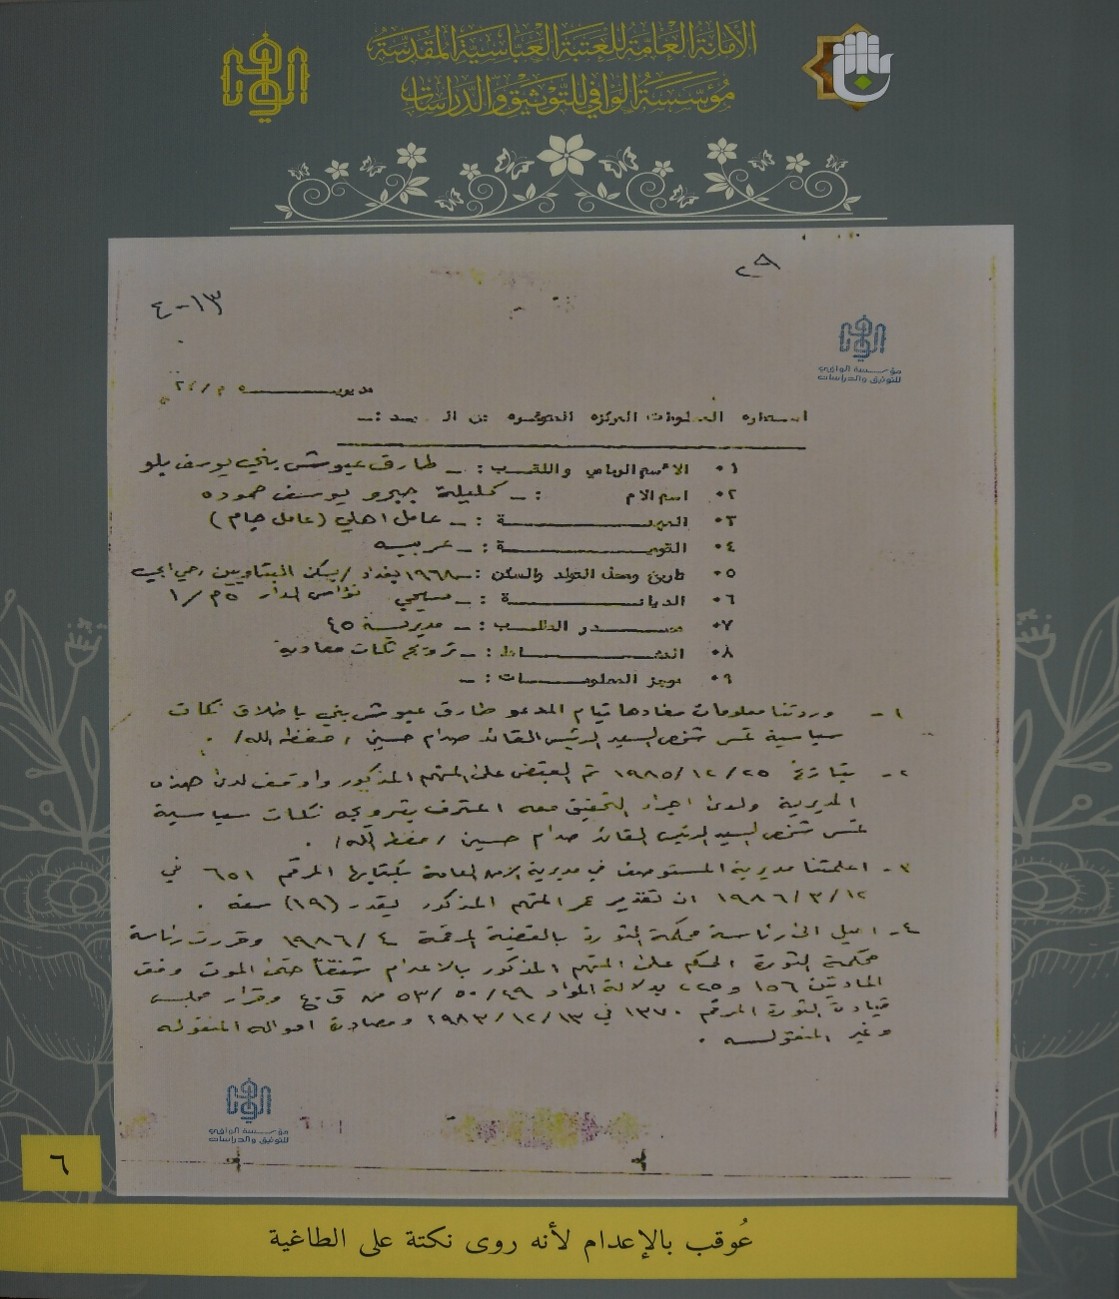 الأمانة العامة للعتبة العباسية المقدسة
مؤسسة الوافي للتوثيق والدراسات
٢٩
١٣-٤
مؤسسة الوافي
للتوثيق والدراسات
مديريـــــــة م/٢٤
استماره المعلومات المركزه المتوفره عن الـ
٠١ الاسم الرباعي واللقب :ـ طارق عيوش بني يوسف يلو
٠٢ اسم الام :ـ كليلة جبرو يوسف حموده
٠٣ المهنـــــــة :ـ عامل اهلي (عامل جام)
٠٤ القوميـــــــة :ـ عربيه
٠٥ تاريخ ومحل التولد والسكن :ـ ١٩٦٨ بغداد / يسكن البتاويين
٠٦ الديانـــــــة :ـ مسيحي نؤاس الدار ٥م/١
٠٧ مصـــدر الطلـــب :ـ مديرية ٤٥
٠٨ النشـــــــاط :ـ ترويج نكات معادية
٠٩ موجز المعلومـــــات :ـ
١ - وردتنا معلومات مفادها قيام المدعو طارق عيوش بني باطلاق نكات
سياسية تمس شخص السيد الرئيس القائد صدام حسين / حفظه الله / .
٢ - بتاريخ ١٩٨٥/١٢/٢٥ تم القبض على المتهم المذكور واوقف لدى هذه
المديرية ولدى اجراء التحقيق معه اعترف بترويجه نكات سياسية
تمس شخص السيد الرئيس القائد صدام حسين / حفظه الله / .
٣ - اعلمتنا مديرية المستوصف في مديرية الامن العامة بكتابها المرقم ٦٥١ في
١٩٨٦/٣/١٢ ان تقدير عمر المتهم المذكور يقدر (١٩) سنة .
٤ - احيل الى رئاسة محكمة الثورة بالقضية المرقمة ١٩٨٦/٤ وقررت رئاسة
محكمة الثورة الحكم على المتهم المذكور بالاعدام شنقاً حتى الموت وفق
المادتين ١٥٦ و ٢٢٥ بدلالة المواد ٤٩/٥٠/٥٣ من ق.ع وقرار مجلس
قيادة الثورة المرقم ١٣٧٠ في ١٩٨٣/١٢/١٣ ومصادرة امواله المنقوله
وغير المنقولـــه .
مؤسسة الوافي
للتوثيق والدراسات
٦
عُوقب بالإعدام لأنه روى نكتة على الطاغية